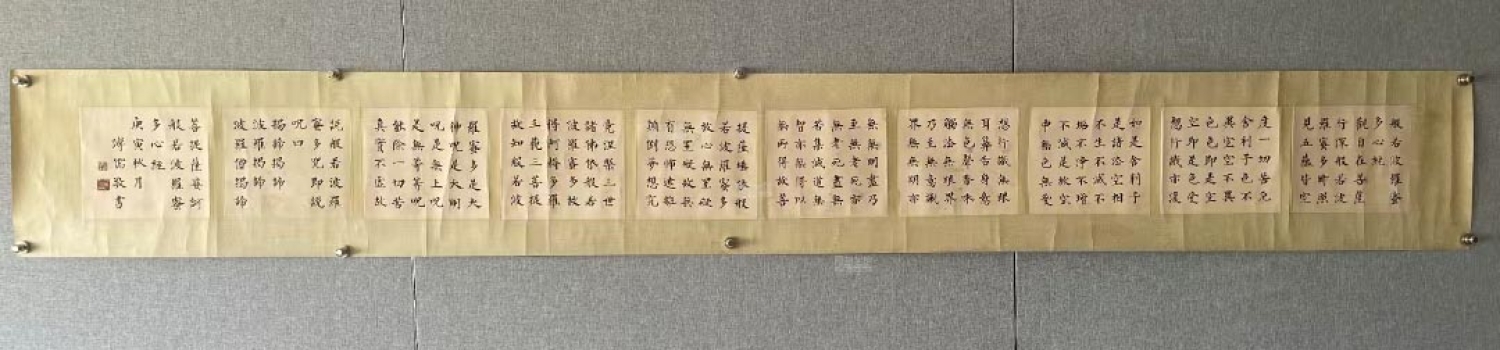 般若波羅蜜
多心經
觀自在菩薩
行深般若波
羅蜜多時照
見五蘊皆空
度一切苦厄
舍利子色不
異空空不異
色色即是空
空即是色受
想行識亦復
如是舍利子
是諸法空相
不生不滅不
垢不淨不增
不減是故空
中無色無受
想行識無眼
耳鼻舌身意
無色聲香味
觸法無眼界
乃至無意識
界無無明亦
無無明盡乃
至無老死亦
無老死盡無
苦集滅道無
智亦無得以
無所得故菩
提薩埵依般
若波羅蜜多
故心無罣礙
無罣礙故無
有恐怖遠離
顛倒夢想究
竟涅槃三世
諸佛依般若
波羅蜜多故
得阿耨多羅
三藐三菩提
故知般若波
羅蜜多是大
神呪是大明
呪是無上呪
是無等等呪
能除一切苦
真實不虛故
說般若波羅
蜜多呪即說
呪曰
揭諦揭諦
波羅揭諦
波羅僧揭諦
菩提薩婆訶
般若波羅蜜
多心經
庚寅秋月
溥儒敬書